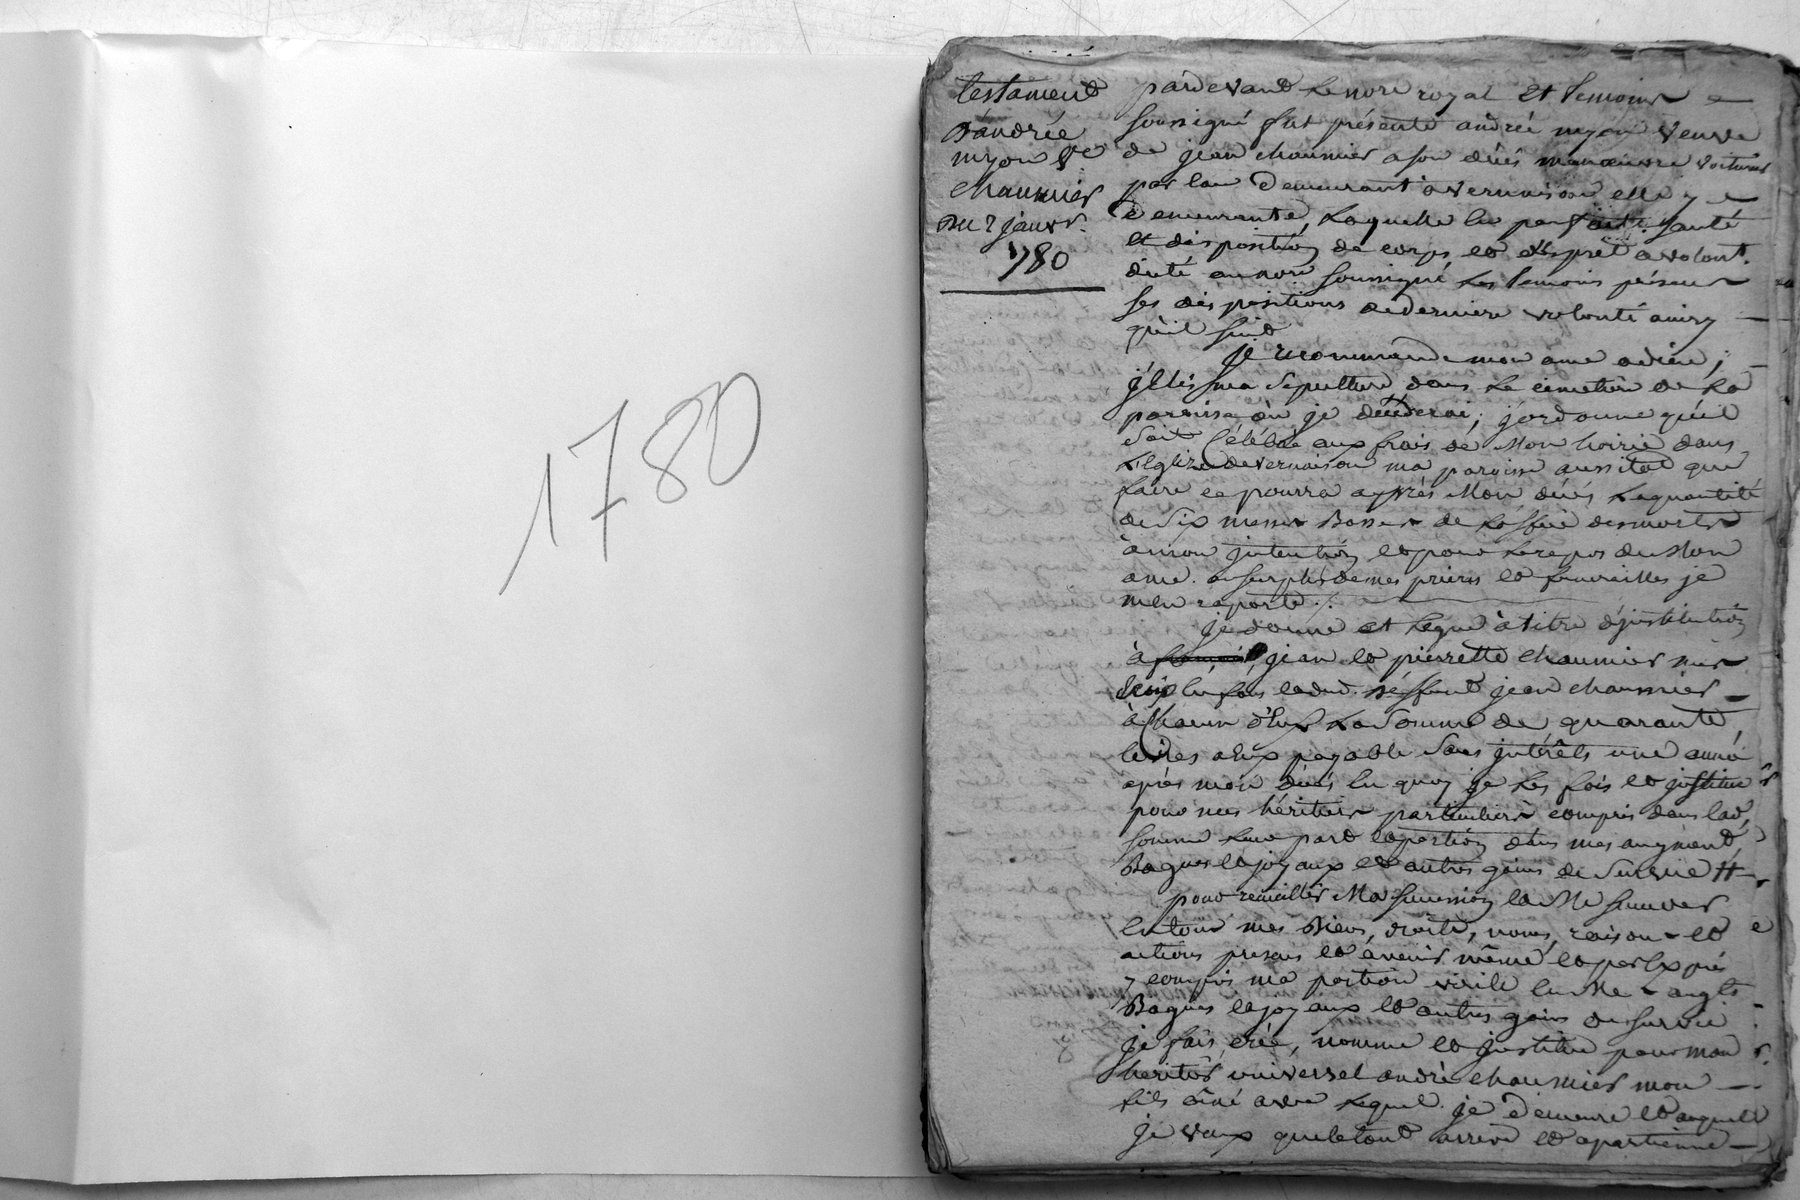 1780
testament
d'andrée
myon Ve
chaumier
Du 2 janvr.
1780
pardevant Le nore royal et temoins
soussigné fut présente andrée myon veuve
de jean chaumier a son décès manoeuvre voiturier
par eau demeurant a vernaison elle y
demeurante, Laquelle en parfaite santé
et disposition de corps et d'esprit a volont.
dicté au nore soussigné Les temoins présens
ses dispositions de derniere volonté ainsy
qu'il suit
je recommande mon ame a dieu,
j'Elis ma sepulture dans Le cimetiere de La
paroisse où je décéderai; j'ordonne qu'il
soit célébré aux frais de Mon hoirie dans
L'Eglize de vernaison ma paroisse aussitot que
faire ce pourra apprès Mon décès La quantité
de six messes Basses de L'office des morts
à mon jntention et pour Le repos de Mon
ame. au surplus de mes prieres et funerailles je
m'en raporte ./.
je donne et Legue à titre d'jnstitution
à jean et pierrette chaumier mes
deux enfans et dud. deffunt jean chaumier
à chacun d'Eux La somme de quarante
livres a eux payable sans jntérêts une année
après mon décès en quoy je Les fais et jnstitue
pour mes héritiers particuliers compris dans lad.
somme Leur part et portion dans mes augment,
Bagues et joyaux et autres gains de survie
pour recueillir Ma succession et Me succeder
en tous mes Biens, droits, noms, raisons et
actions presens et avenir même et par Exprès
y compris ma portion virile en Me augts
Bagues et joyaux et autres gains de survie
je fais, crée, nomme et jnstitue pour mon
heritier universel andré chaumier mon
fils ainé avec Lequel je demeure et auquel
je veux que le tout arrive et apartienne